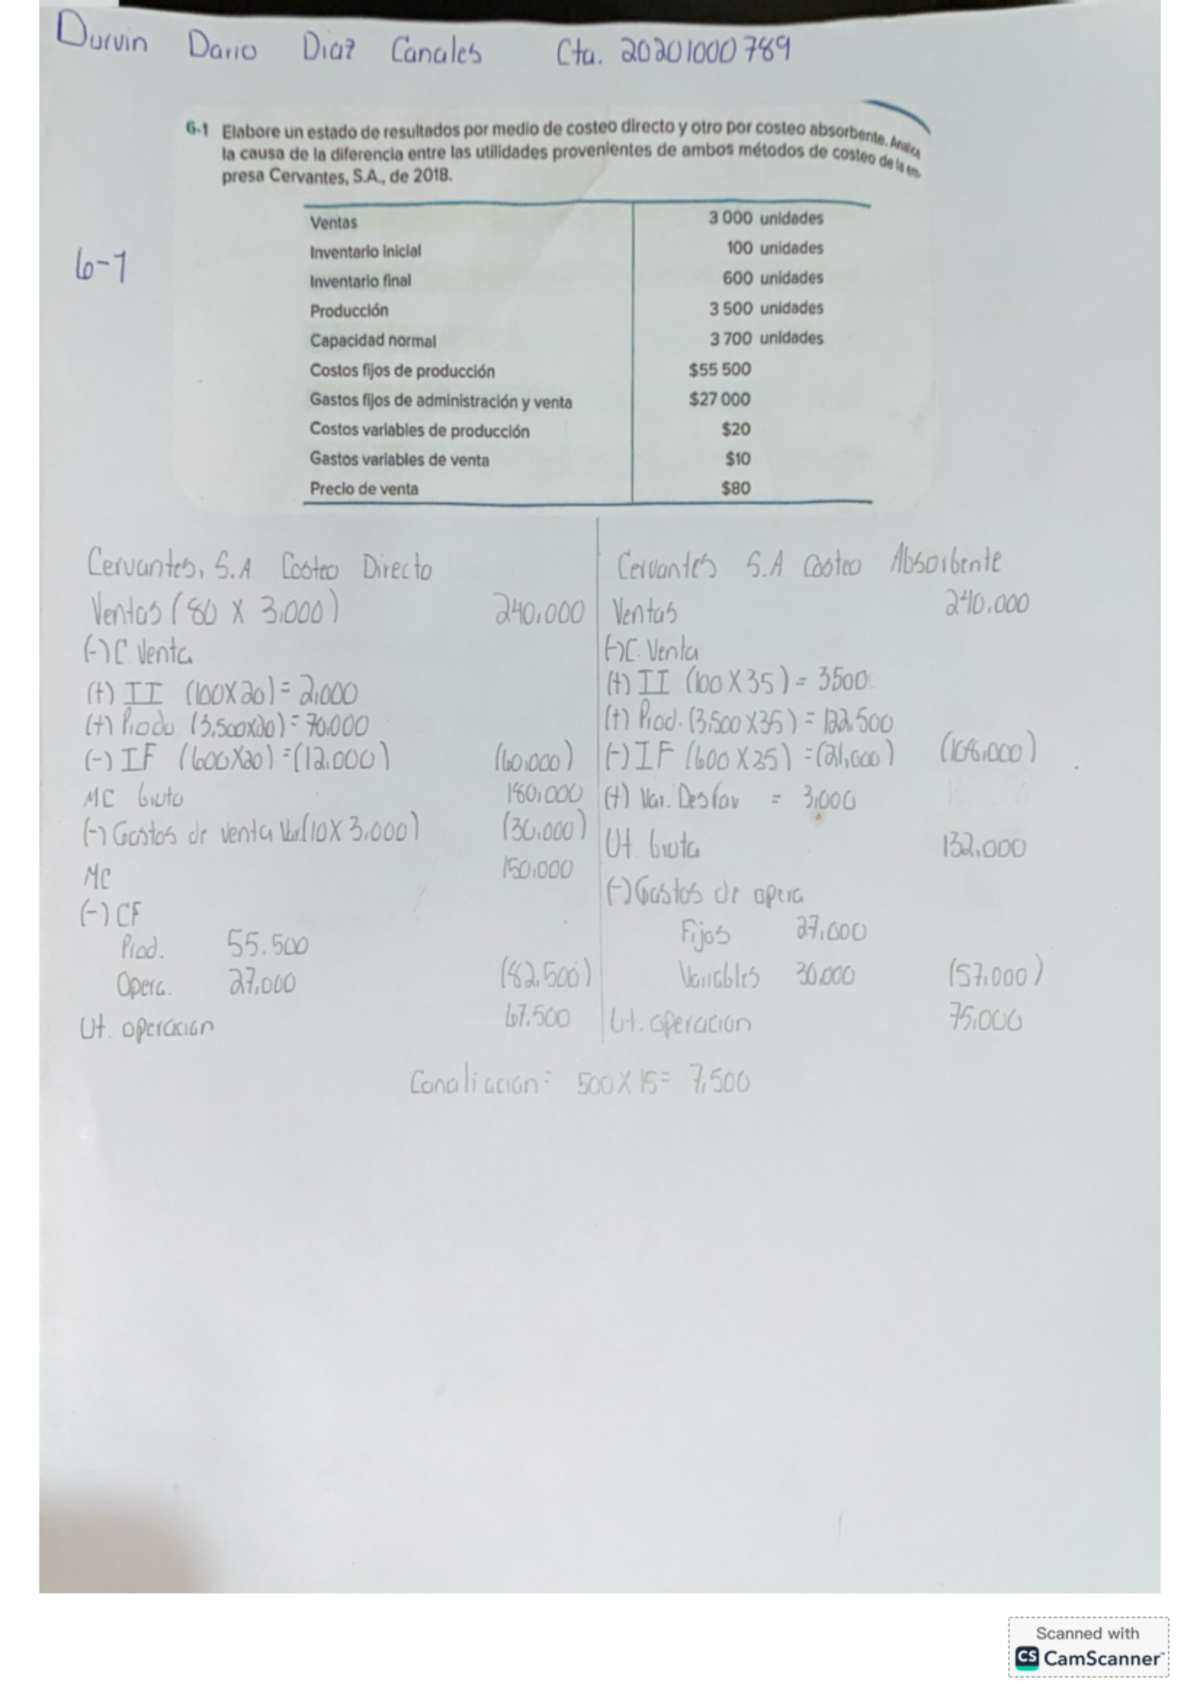 Durvin Dario Diaz Canales Cta. 20201000789
6-1 Elabore un estado de resultados por medio de costeo directo y otro por costeo absorbente. Analice
la causa de la diferencia entre las utilidades provenientes de ambos métodos de costeo de la em-
presa Cervantes, S.A., de 2018.
6-1
Ventas 3 000 unidades
Inventario inicial 100 unidades
Inventario final 600 unidades
Producción 3 500 unidades
Capacidad normal 3 700 unidades
Costos fijos de producción $55 500
Gastos fijos de administración y venta $27 000
Costos variables de producción $20
Gastos variables de venta $10
Precio de venta $80
Cervantes, S.A Costeo Directo
Ventas (80 X 3,000) 240,000
(-) C. Venta
(+) II (100X20) = 2,000
(+) Produ. (3,500x20) = 70,000
(-) IF (600X20) = (12,000) (60,000)
MC bruto 180,000
(-) Gastos de venta Var.(10X 3,000) (30,000)
MC 150,000
(-) CF
Prod. 55,500
Opera. 27,000 (82,500)
Ut. operacion 67,500
Cervantes S.A Costeo Absorbente
Ventas 240,000
(-) C. Venta
(+) II (100 X 35) = 3500
(+) Prod. (3,500 X 35) = 122,500
(-) IF (600 X 35) = (21,000) (108,000)
(+) Var. Desfav = 3,000
Ut. bruta 132,000
(-) Gastos de opera
Fijos 27,000
Variables 30,000 (57,000)
Ut. operacion 75,000
Conciliacion = 500 X 15 = 7,500
Scanned with
CS CamScanner